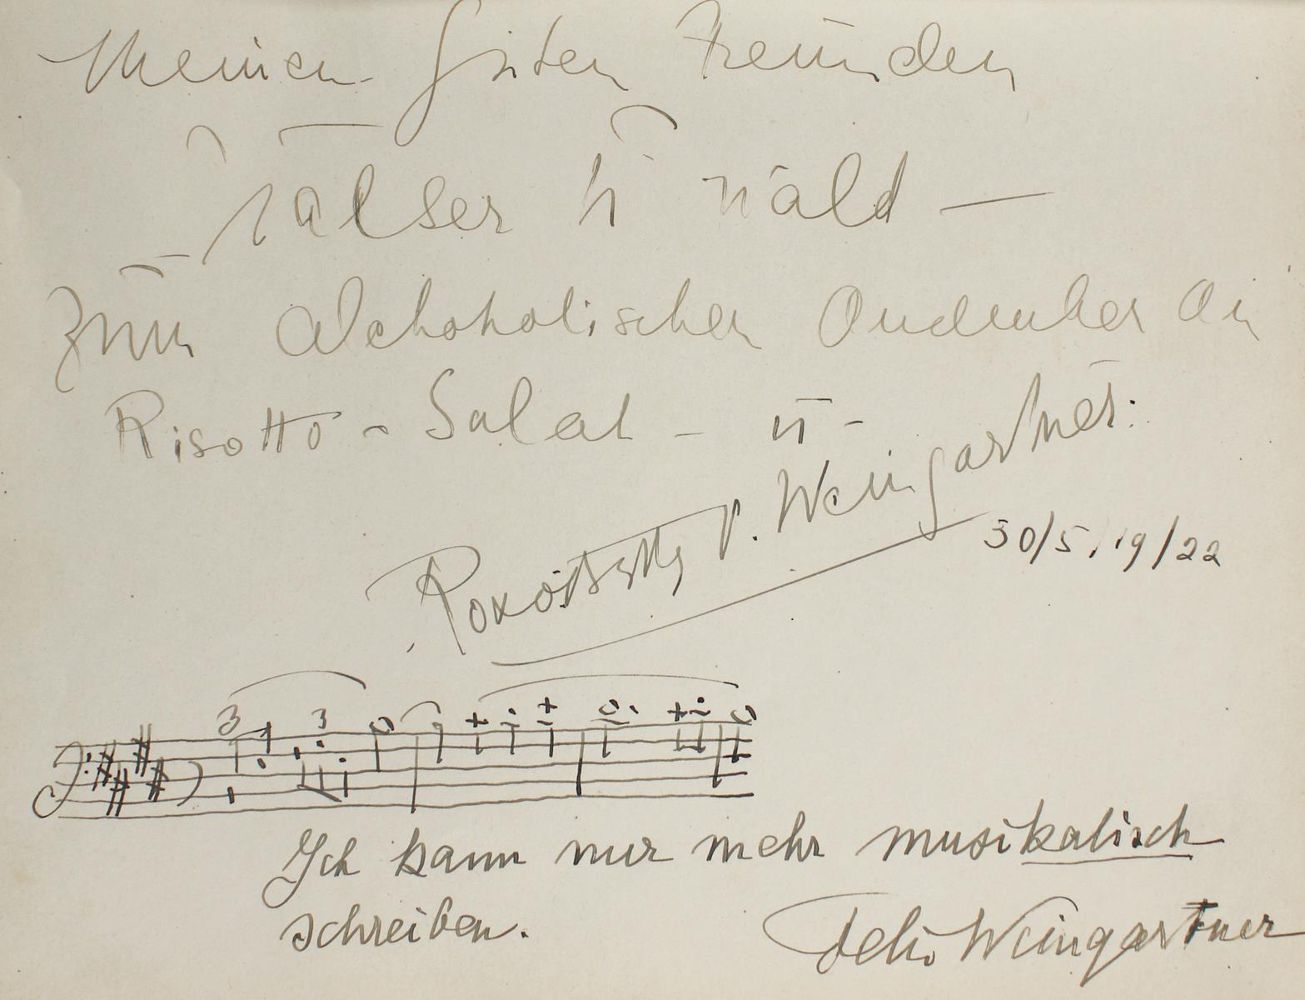 Meinen guten Freunden
Wälser u Wald —
zum alchoholischen Andenken an
Risotto - Salat - u -
Roxo Betty v. Weingartner.
30/5. 19/22
3 3
Ich kann nur mehr musikalisch
schreiben.
Felix Weingartner